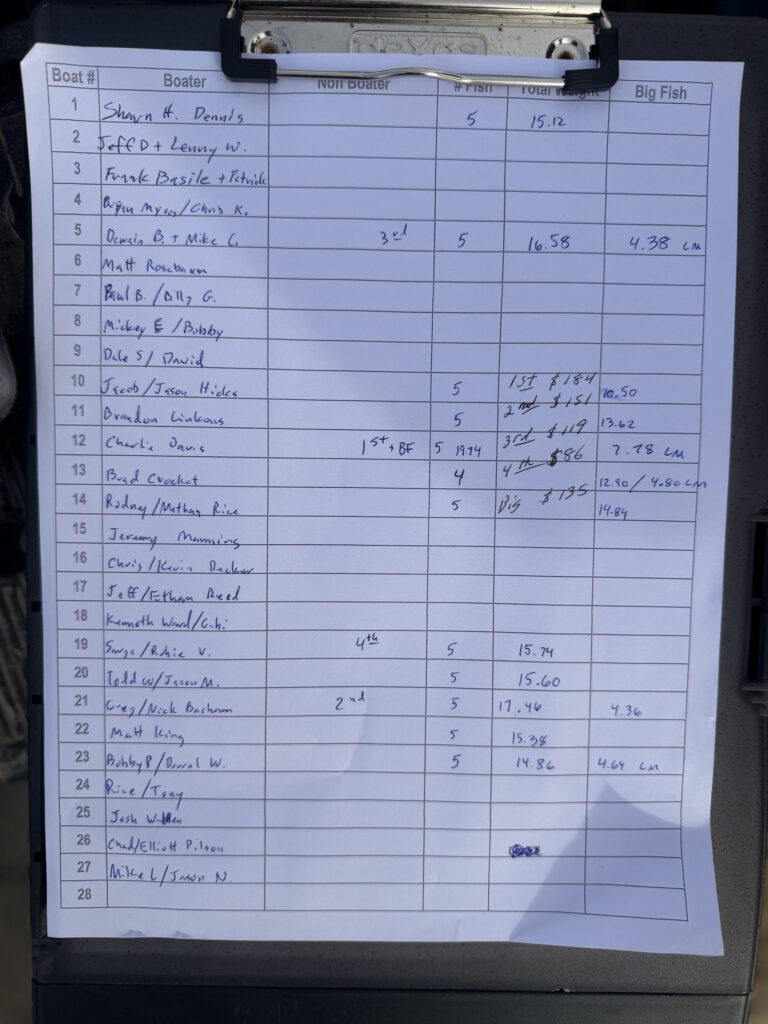 Boat # Boater Non Boater # Fish Total Weight Big Fish
1 Shawn H. Dennis 5 15.12
2 Jeff D + Lenny W.
3 Frank Basile + Patrick
4 Bryan Myers/Chris K.
5 Dewain B. + Mike C. 3rd 5 16.58 4.38 LM
6 Matt Rosebaum
7 Paul B. /Billy G.
8 Mickey E /Bobby
9 Dale S/ David
10 Jacob/Jason Hicks 5 1st $184 10.50
11 Brandon Linkous 5 2nd $151 13.62
12 Charlie Davis 1st + BF 5 19.74 3rd $119 7.78 LM
13 Brad Crocket 4 4th $86 12.90 / 4.80 LM
14 Rodney/Mathan Rice 5 Big $135 14.84
15 Jeremy Manning
16 Chris/Kevin Decker
17 Jeff/Ethan Reed
18 Kenneth Ward/
19 /Robie V. 4th 5 15.74
20 Todd W/Jason M. 5 15.60
21 Greg/Nick Basham 2nd 5 17.46 4.36
22 Matt King 5 15.38
23 Bobby P/Darrel W. 5 14.86 4.64 LM
24 Rice/Tony
25 Josh
26 Chad/Elliott Pilson
27 Mike L/Jason N.
28